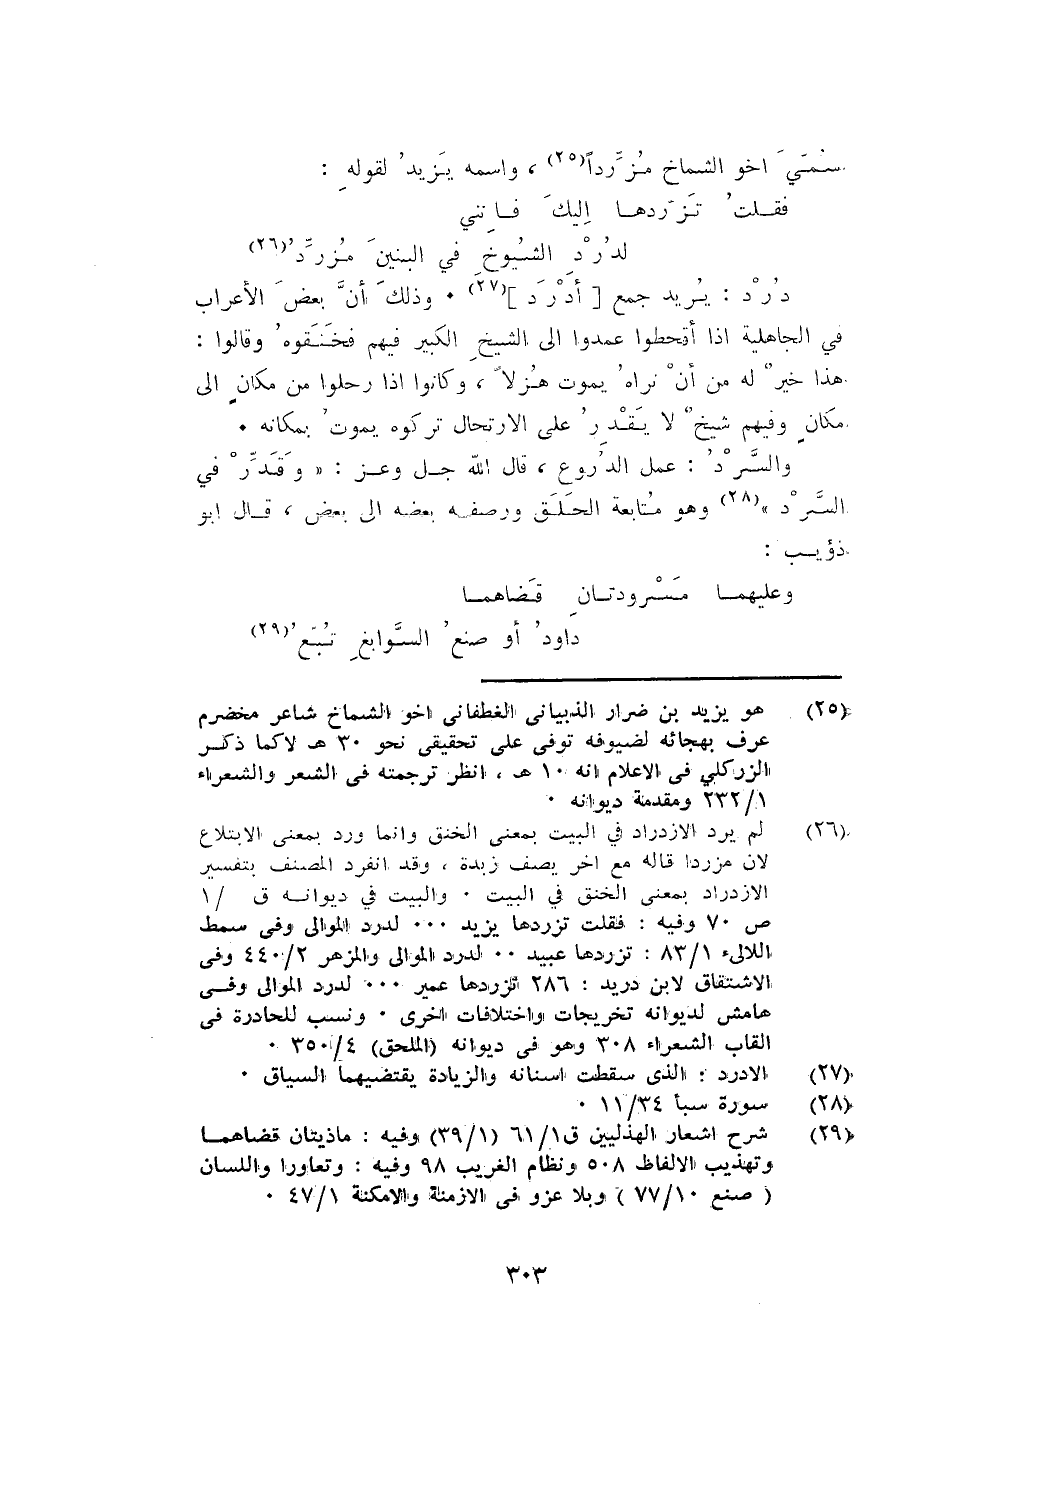 سُمّيَ اخو الشماخ مُزَرِّداً(٢٥) ، واسمه يَزيدُ لقولهِ :
فقـلـتُ تَزَرَّدهـا إليكَ فـإنني
لدُرْدِ الشيُوخِ في البنينَ مُزرِّدُ(٢٦)
دُرْد : يُريد جمع [ أدْرَد ](٢٧) ٠ وذلكَ أنَّ بعضَ الأعراب
في الجاهلية اذا أقحطوا عمدوا الى الشيخِ الكبير فيهم فخَنَقوهُ وقالوا :
هذا خيرٌ له من أنْ نراهُ يموت هُزلاً ، وكانوا اذا رحلوا من مكانٍ الى
مكانٍ وفيهم شيخٌ لا يَقْدِرُ على الارتحال تركوه يموتُ بمكانه ٠
والسَّرْدُ : عمل الدُروع ، قال الله جـل وعـز : « وَقَدِّرْ في
السَّرْد »(٢٨) وهو مُتابعة الحَلَق ورصفـه بعضه الى بعض ، قـال ابو
ذؤيـب :
وعليهمـا مَسْرودتـانِ قَضاهمـا
داودُ أو صنعُ السَّوابغِ تُبّعُ(٢٩)
(٢٥) هو يزيد بن ضرار الذبيانى الغطفانى اخو الشماخ شاعر مخضرم
عرف بهجائه لضيوفه توفى على تحقيقى نحو ٣٠ هـ لاكما ذكـر
الزركلي فى الاعلام انه ١٠ هـ ، انظر ترجمته فى الشعر والشعراء
٢٣٢/١ ومقدمة ديوانه ٠
(٢٦) لم يرد الازدراد في البيت بمعنى الخنق وانما ورد بمعنى الابتلاع
لان مزردا قاله مع اخر يصف زبدة ، وقد انفرد المصنف بتفسير
الازدراد بمعنى الخنق في البيت ٠ والبيت في ديوانـه ق /١
ص ٧٠ وفيه : فقلت تزردها يزيد ٠٠٠ لدرد الموالى وفى سمط
اللالىء ٨٣/١ : تزردها عبيد ٠٠ لدرد الموالى والمزهر ٤٤٠/٢ وفى
الاشتقاق لابن دريد : ٢٨٦ تزردها عمير ٠٠٠ لدرد الموالى وفـى
هامش لديوانه تخريجات واختلافات اخرى ٠ ونسب للحادرة فى
القاب الشعراء ٣٠٨ وهو فى ديوانه (الملحق) ٣٥٠/٤ ٠
(٢٧) الادرد : الذى سقطت اسنانه والزيادة يقتضيهما السياق ٠
(٢٨) سورة سبأ ١١/٣٤ ٠
(٢٩) شرح اشعار الهذليين ق١/٦١ (٣٩/١) وفيه : ماذيتان قضاهمـا
وتهذيب الالفاظ ٥٠٨ ونظام الغريب ٩٨ وفيه : وتعاورا واللسان
( صنع ٧٧/١٠ ) وبلا عزو فى الازمنة والامكنة ٤٧/١ ٠
٣٠٣